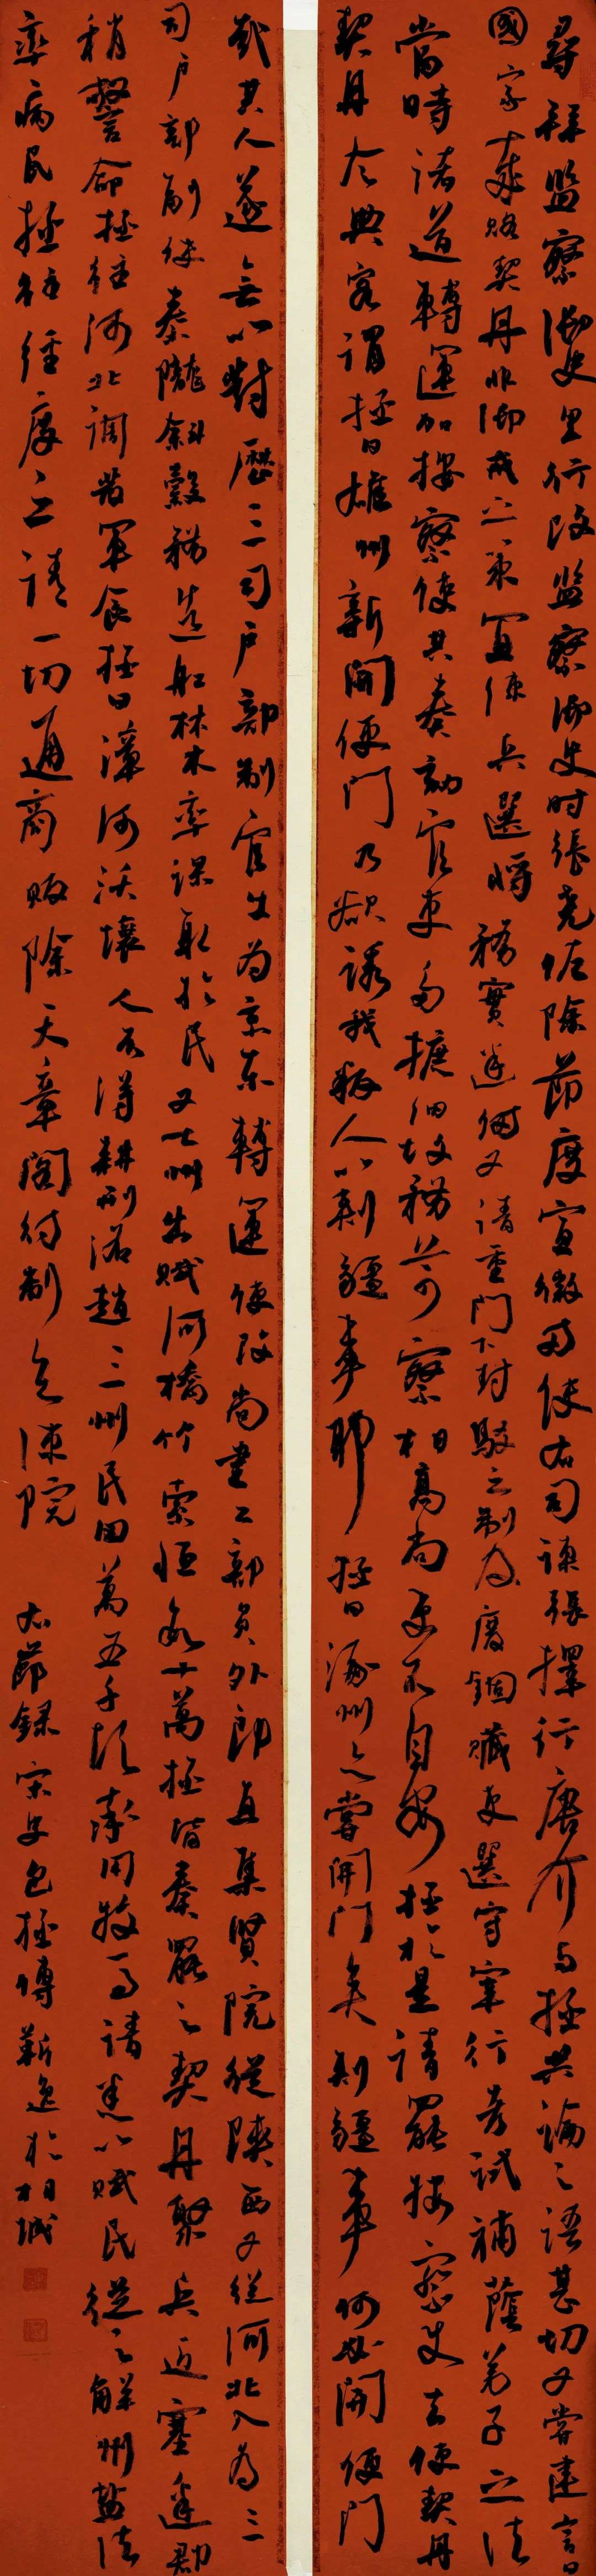 尋拜監察御史里行改監察御史時張堯佐除節度宣徽兩使右司諫張擇行唐介與拯共論之語甚切又嘗建言曰
國家歲賂契丹非御戎之策宜練兵選將務實邊備又請重門下封駁之制及廢錮贓吏選守宰行考試補蔭弟子之法
當時諸道轉運加按察使其奏劾官吏多摭細故務苛察相高尚吏不自安拯於是請罷按察使去使契丹
契丹令典客謂拯曰雄州新開便門乃欲誘我叛人以刺疆事耶拯曰涿州亦嘗開門矣刺疆事何必開便門
哉其人遂無以對歷三司戶部判官出為京東轉運使改尚書工部員外郎直集賢院徙陝西又徙河北入為三
司戶部副使秦隴斜谷務造船材木率課取於民又七州出賦河橋竹索恒數十萬拯皆奏罷之契丹聚兵近塞邊郡
稍警命拯往河北調發軍食拯曰漳河沃壤人不得耕邢洺趙三州民田萬五千頃率用牧馬請悉以賦民從之解州鹽法
率病民拯往經度之請一切通商販除天章閣待制知諫院
右節錄宋史包拯傳 新逸於相城